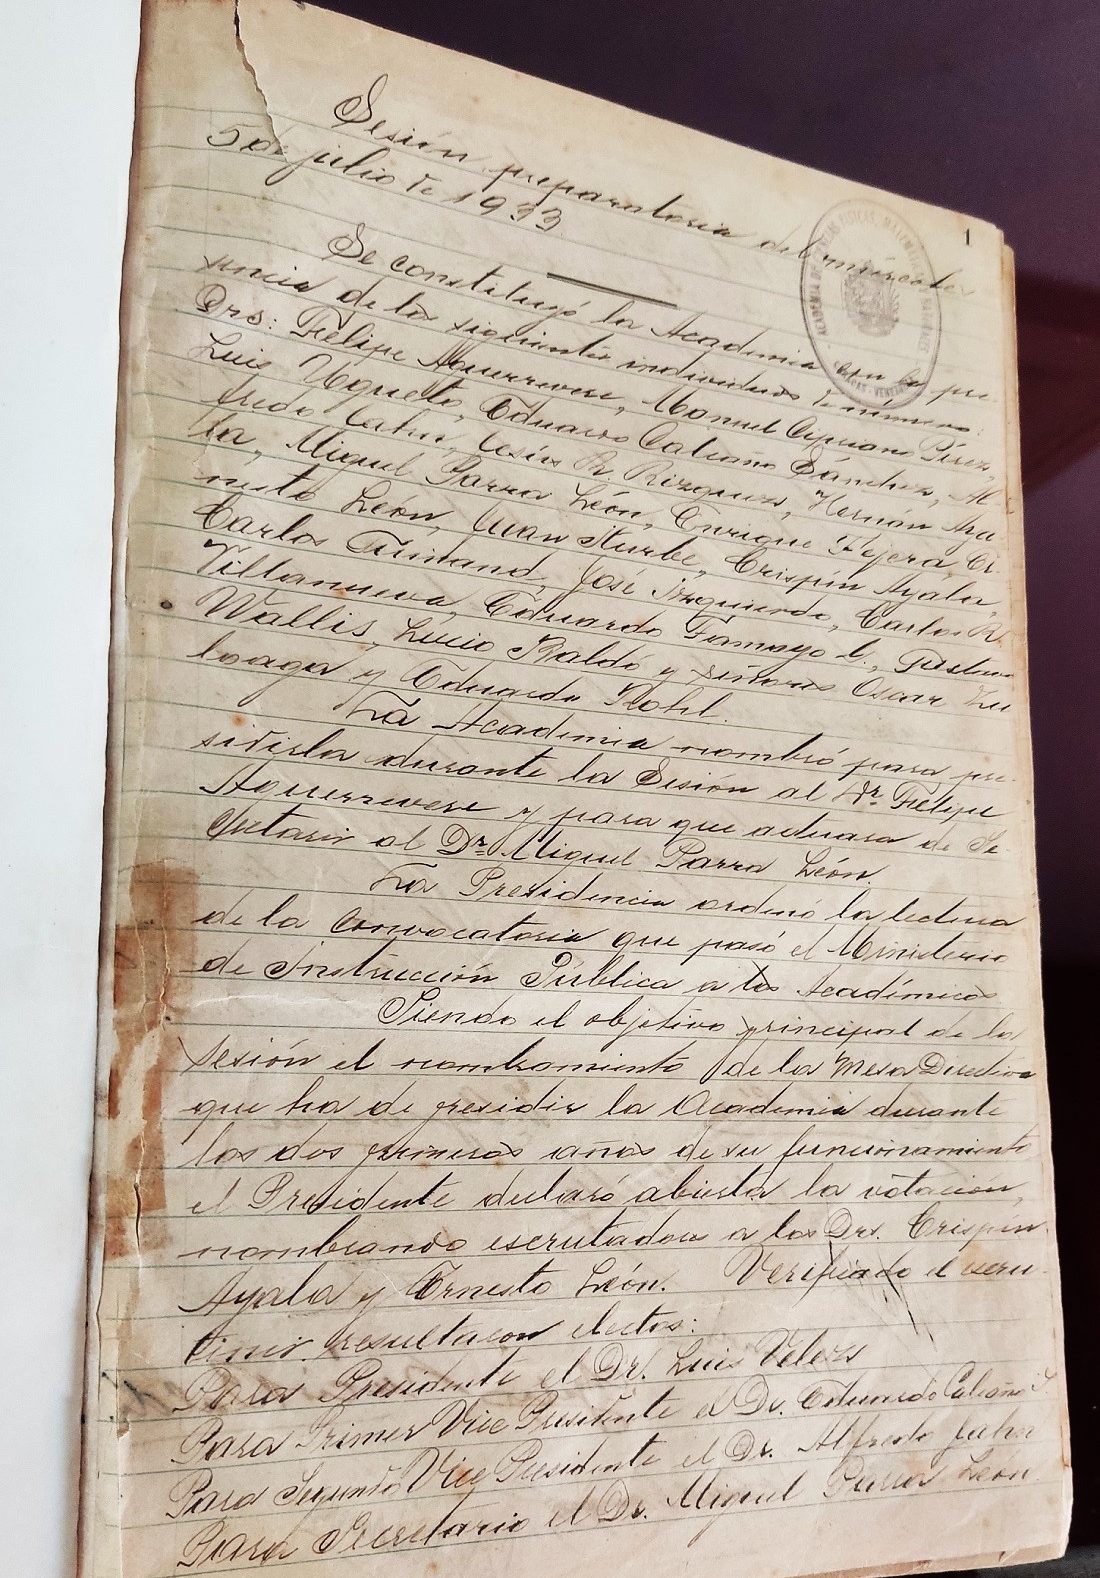 Sesión preparatoria del miércoles
5 de julio de 1933.
1
Se constituyó la Academia con la pre-
sencia de los siguientes individuos de número:
Drs: Felipe Aguerrevere, Manuel Cipriano Pérez,
Luis Ugueto, Eduardo Calcaño Sánchez, Al-
fredo Jahn, Jesús R. Rizquez, Hernan Aya-
la, Miguel Parra León, Enrique Tejera, Er-
nesto León, Juan Iturbe, Crispín Ayala,
Carlos José Izquierdo, Carlos R.
Villanueva, Eduardo Tamayo G., Gustavo
Wallis, Lucio Baldó y señores Oscar Zu-
loaga y Eduardo Röhl.
La Academia nombró para pre-
sidirla durante la Sesión al Dr. Felipe
Aguerrevere y para que actuara de Se-
cretario al Dr. Miguel Parra León.
La Presidencia ordenó la lectura
de la convocatoria que pasó el Ministerio
de Instrucción Pública a los Académicos
Siendo el objetivo principal de la
sesión el nombramiento de la Mesa Directiva
que ha de presidir la Academia durante
los dos primeros años de su funcionamiento
el Presidente declaró abierta la votación,
nombrando escrutadores a los Drs. Crispín
Ayala y Ernesto León. Verificado el escru-
tinio resultaron electos:
Para Presidente el Dr. Luis
Para Primer Vice Presidente el Dr. Eduardo Calcaño S.
Para Segundo Vice Presidente el Dr. Alfredo Jahn
Para Secretario el Dr. Miguel Parra León